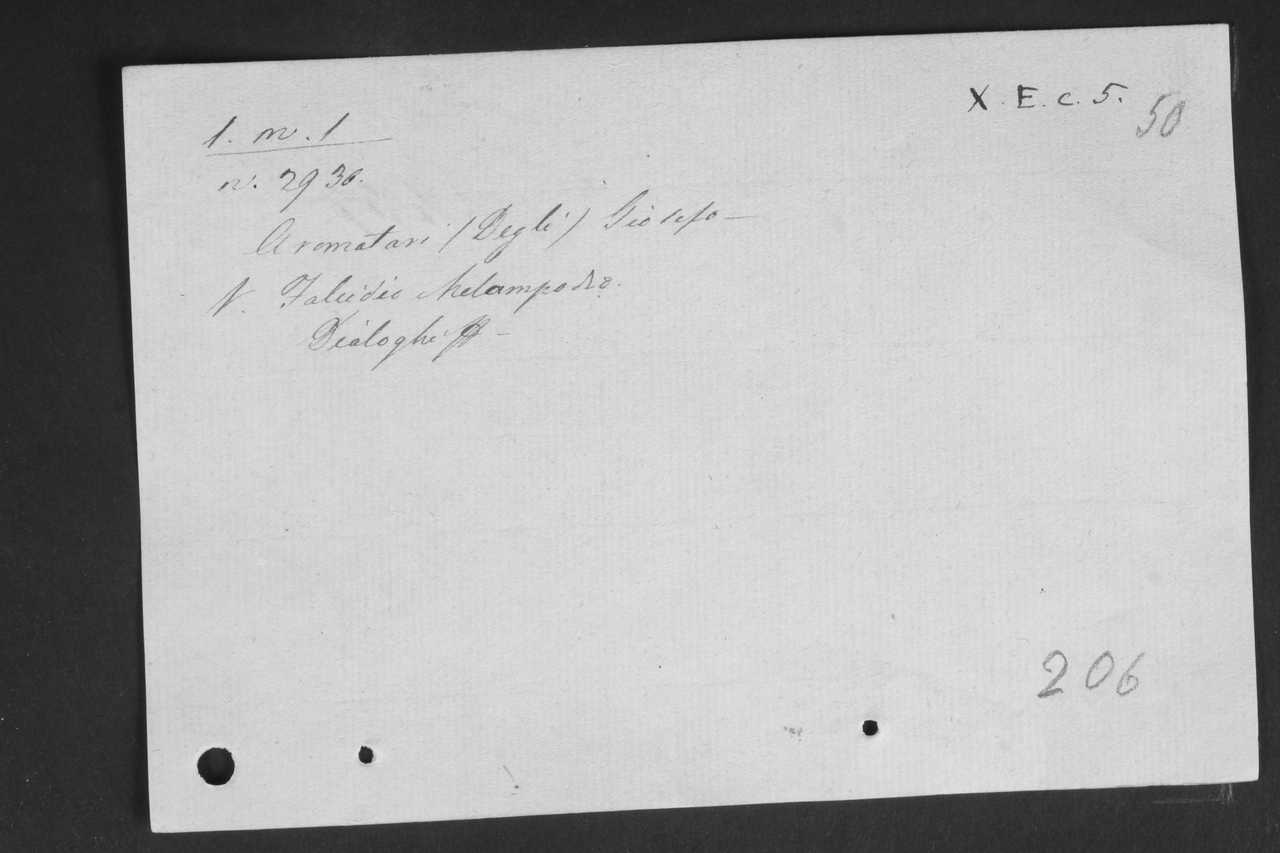 X. E. c. 5.
50
1. m. 1
n. 2930.
Aromatari (Degli) Giosefo —
V. Falcidio Melampodio.
Dialoghi —
206